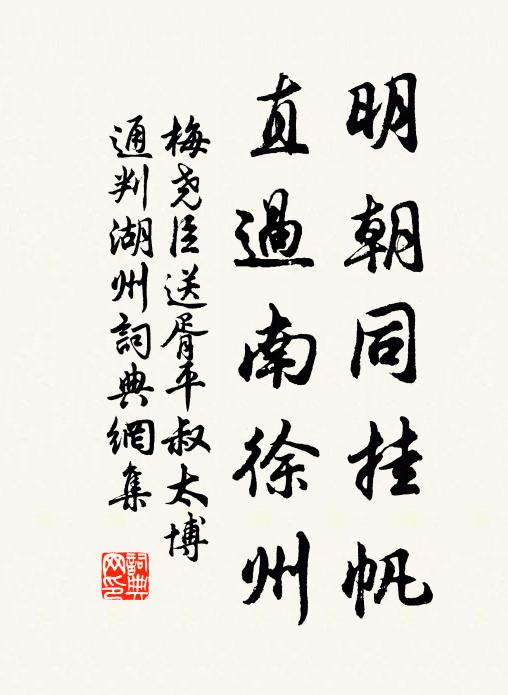 明朝同挂帆
直過南徐州
梅堯臣送胥平叔太博
通判湖州詞典網集
詞典网印